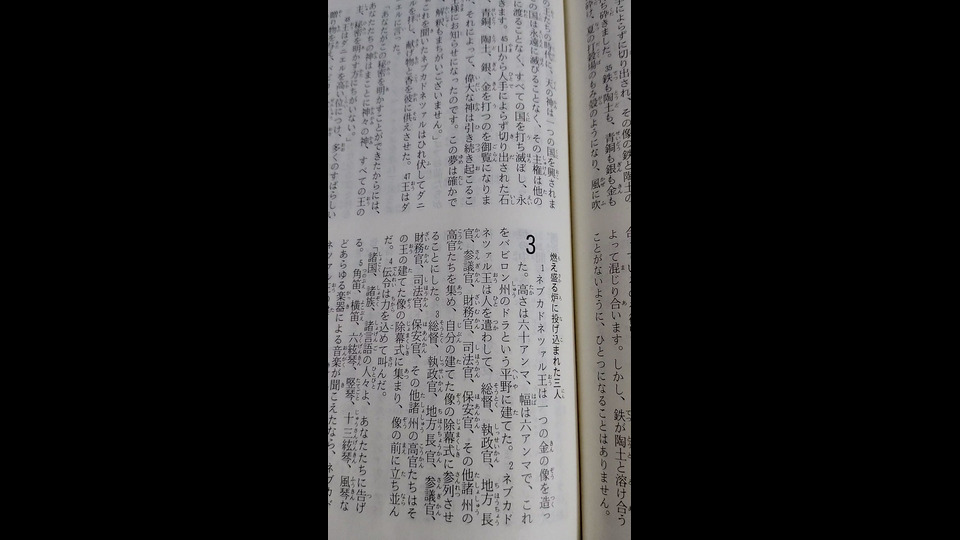 手によらずに切り出され、その像の鉄と陶土の
砕きました。35鉄も陶土も、青銅も銀も金も
夏の打穀場のもみ殻のようになり、風に吹
よって混じり合います。しかし、鉄が陶土と溶け合う
ことがないように、ひとつになることはありません。
王たちの時代に、天の神は一つの国を興されま
の国は永遠に滅びることなく、その主権は他の
に渡ることなく、すべての国を打ち滅ぼし、永
きます。45山から人手によらず切り出された石
青銅、陶土、銀、金を打つのを御覧になりま
それによって、偉大な神は引き続き起こるこ
様にお知らせになったのです。この夢は確かで
解釈もまちがいございません。」
これを聞いたネブカドネツァルはひれ伏してダニ
エルを拝し、献げ物と香を彼に供えさせた。47王はダ
エルに言った。
「あなたがこの秘密を明かすことができたからには、
あなたたちの神はまことに神々の神、すべての王の
主、秘密を明かす方にちがいない。」
48王はダニエルを高い位につけ、多くのすばらしい
燃え盛る炉に投げ込まれた三人
3
1ネブカドネツァル王は一つの金の像を造っ
た。高さは六十アンマ、幅は六アンマで、これ
をバビロン州のドラという平野に建てた。2ネブカド
ネツァル王は人を遣わして、総督、執政官、地方長
官、参議官、財務官、司法官、保安官、その他諸州の
高官たちを集め、自分の建てた像の除幕式に参列させ
ることにした。3総督、執政官、地方長官、参議官、
財務官、司法官、保安官、その他諸州の高官たちはそ
の王の建てた像の除幕式に集まり、像の前に立ち並ん
だ。4伝令は力を込めて叫んだ。
「諸国、諸族、諸言語の人々よ、あなたたちに告げ
る。5角笛、横笛、六絃琴、竪琴、十三絃琴、風琴な
どあらゆる楽器による音楽が聞こえたなら、ネブカド